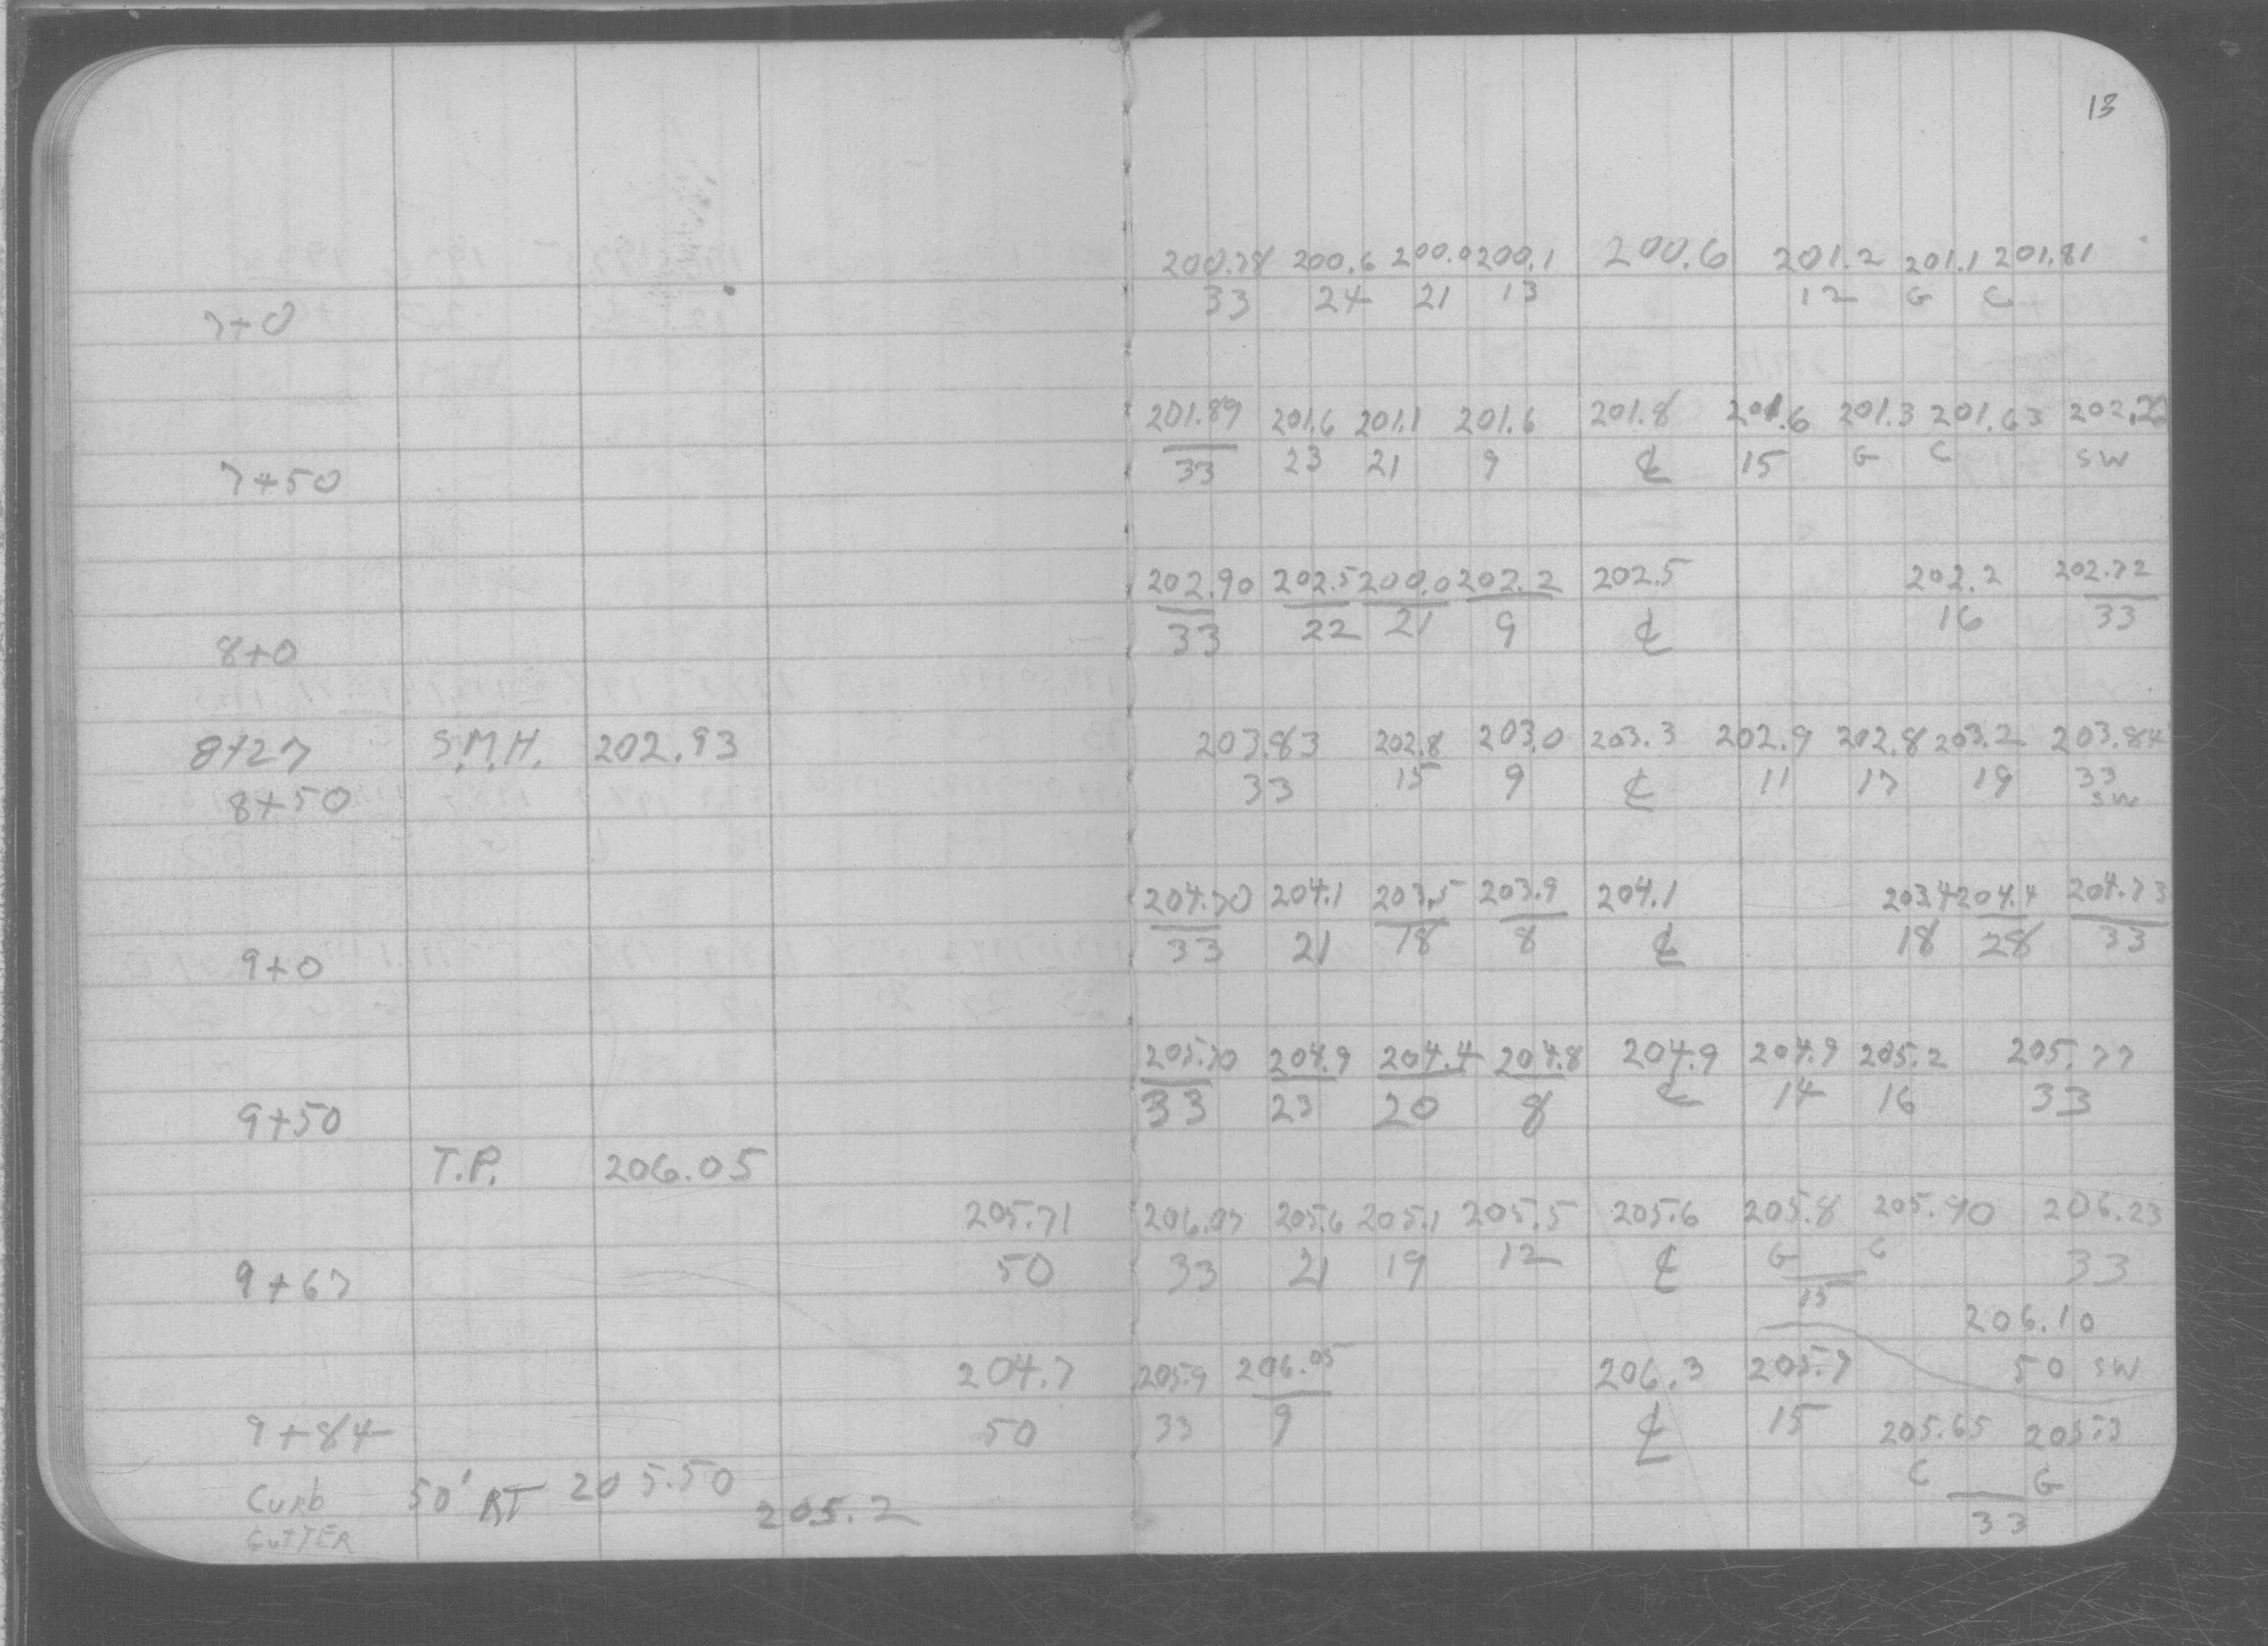 13
200.78 200.6 200.0 200.1 200.6 201.2 201.1 201.81
33 24 21 13 12 G C
7+0
201.89 201.6 201.1 201.6 201.8 201.6 201.3 201.63 202.22
33 23 21 9 ℄ 15 G C SW
7+50
202.90 202.5 200.0 202.2 202.5 202.2 202.72
33 22 21 9 ℄ 16 33
8+0
8+27 S.M.H. 202.93 203.83 202.8 203.0 203.3 202.9 202.8 203.2 203.84
8+50 33 15 9 ℄ 11 17 19 33
SW
204.70 204.1 203.5 203.9 204.1 203.4 204.4 204.73
33 21 18 8 ℄ 18 28 33
9+0
205.70 204.9 204.4 204.8 204.9 204.9 205.2 205.77
33 23 20 8 ℄ 14 16 33
9+50
T.P. 206.05
205.71 206.07 205.6 205.1 205.5 205.6 205.8 205.90 206.23
9+67 50 33 21 19 12 ℄ G C 33
15
206.10
204.7 205.9 206.05 206.3 205.7 50 SW
9+84 50 33 9 ℄ 15 205.65 205.3
CURB 50' RT 205.50 C G
GUTTER 205.2 33